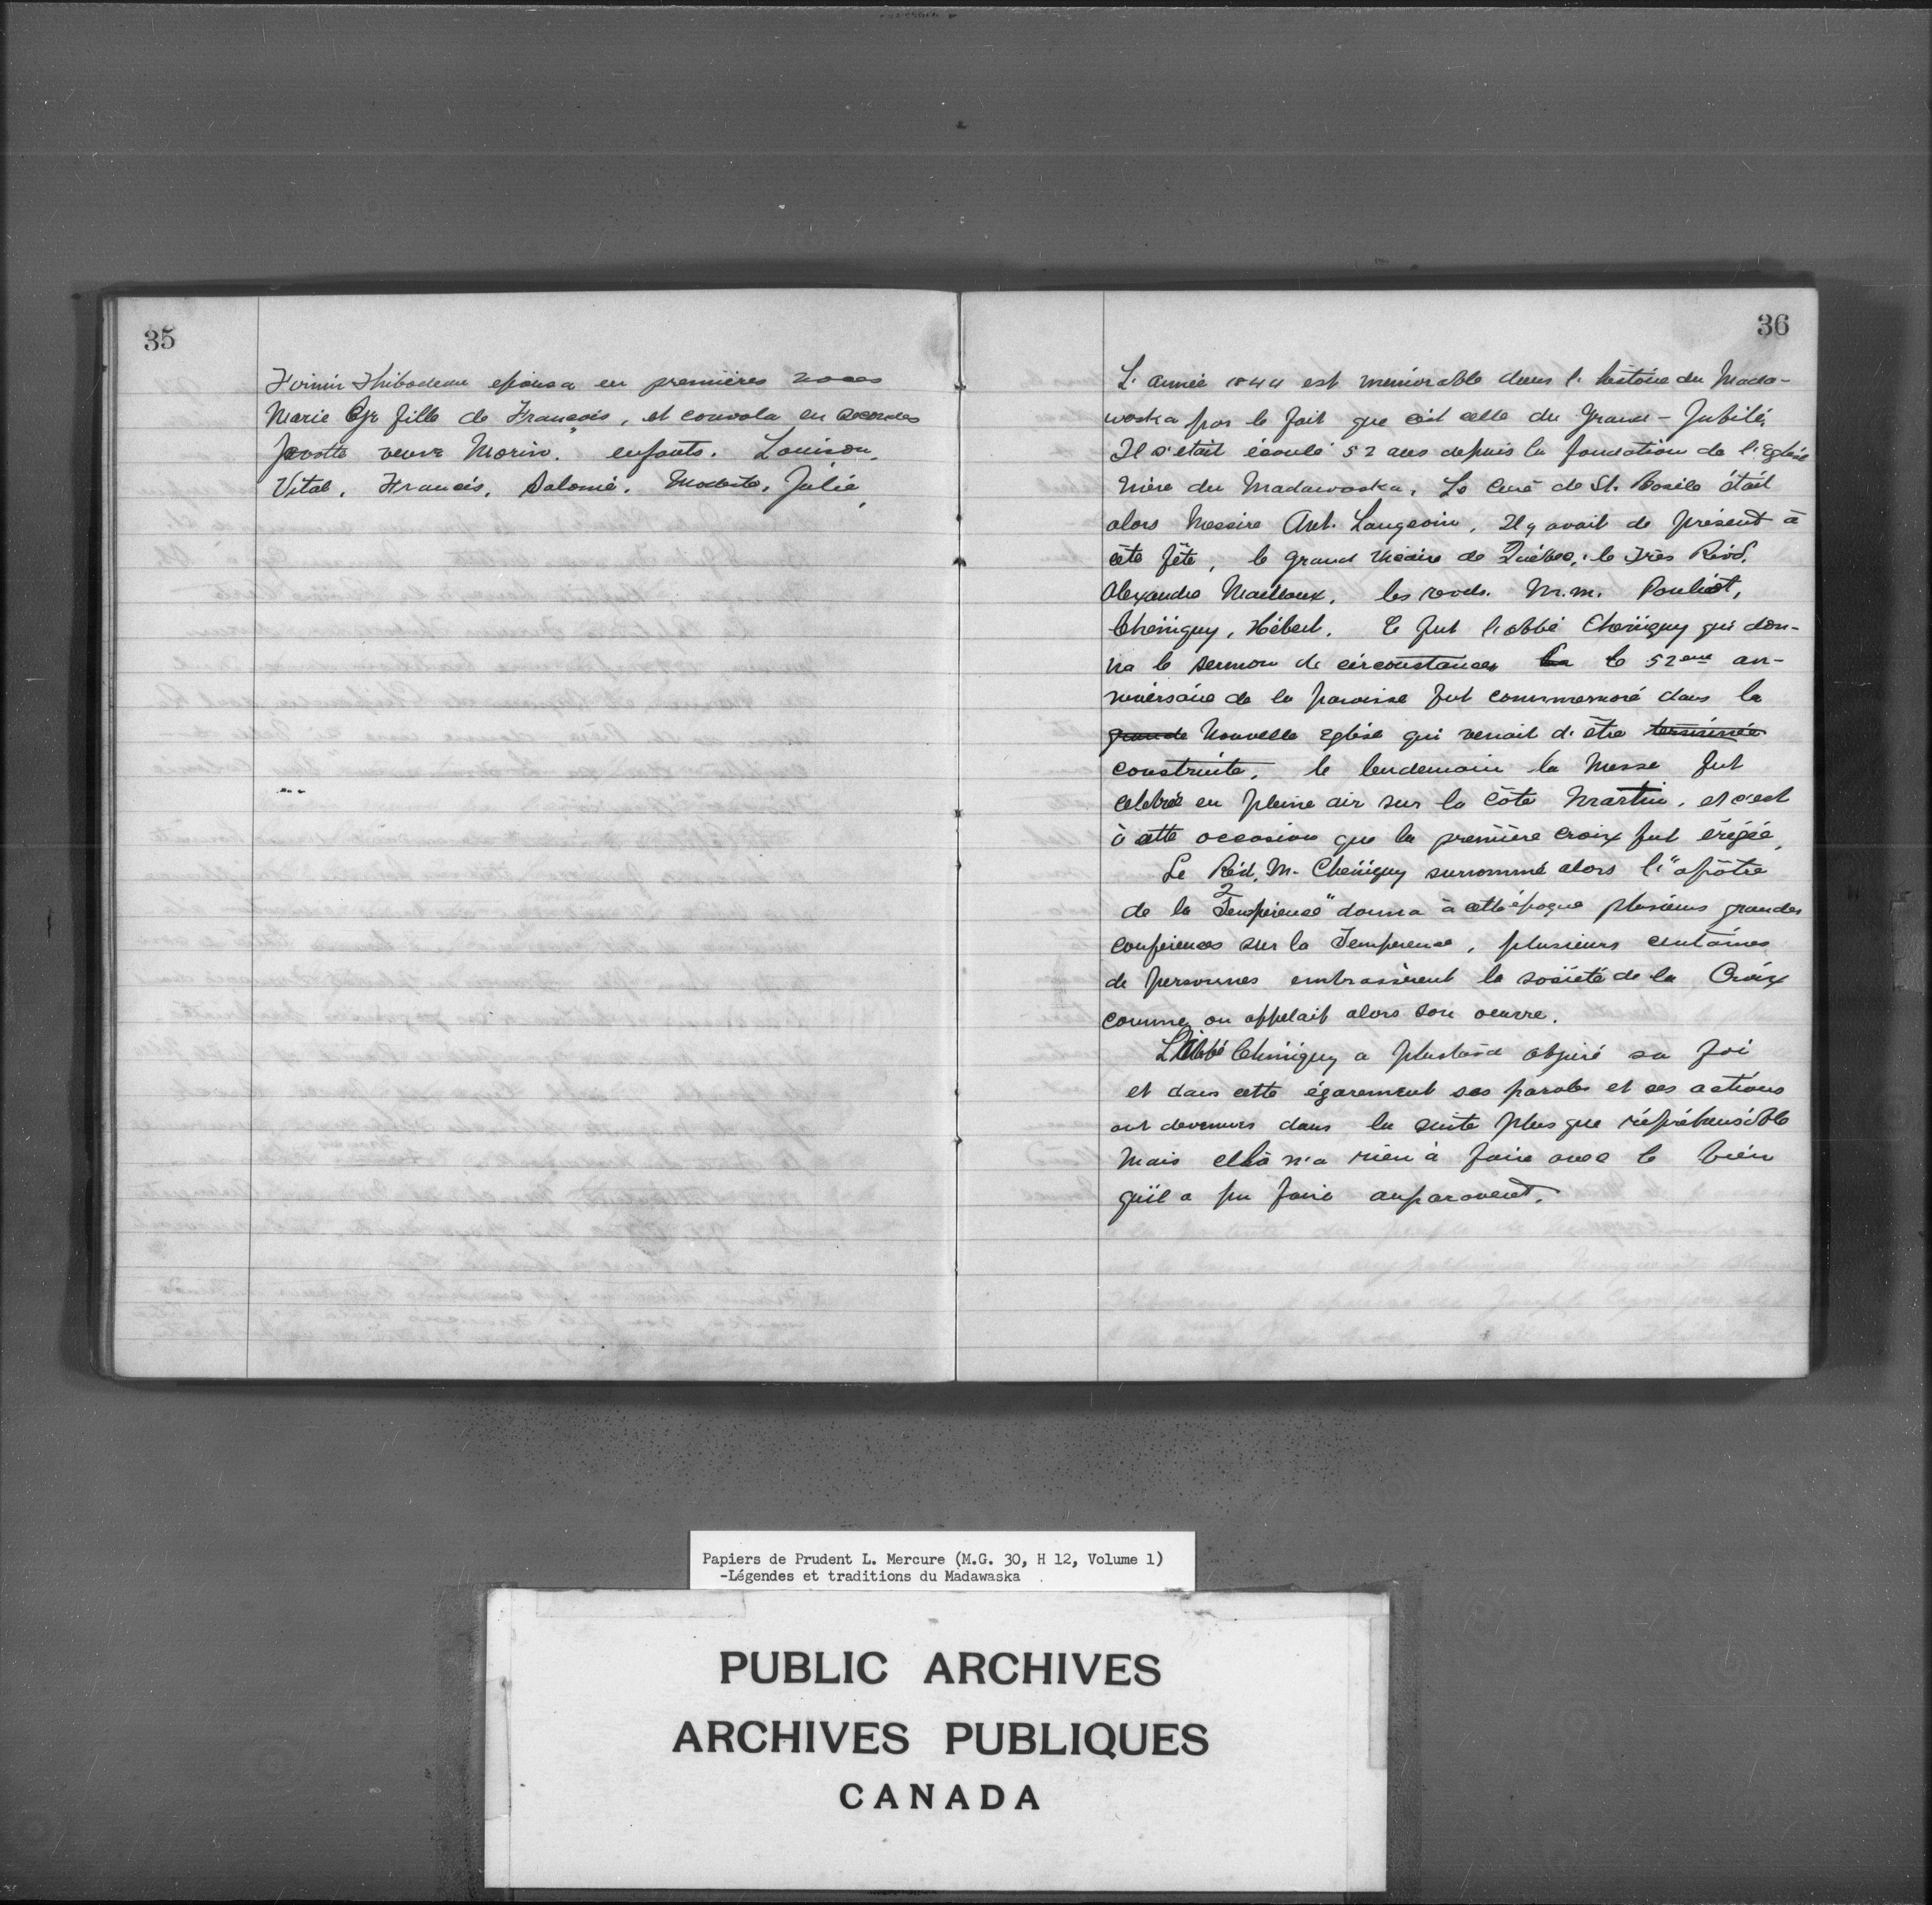 35
Firmin Thibodeau epousa en premières noces
Marie Cyr fille de François, et convola en secondes
Javotte veuve Morin. enfants. Louison.
Vital. Francis. Salomé. Modeste. Julie
36
L'année 1844 est memorable dans l'histoire du Mada-
waska par le fait que c'est celle du Grand-Jubilé.
Il s'était écoulé 52 ans depuis la fondation de l'Eglise
Mère du Madawaska. Le Curé de St. Basile était
alors Messire Ant. Langevin. Il y avait de présent à
cète fête, le grand Vicaire de Québec, le Très Révd.
Alexandre Mailloux, les revds. M.M. Pouliot,
Chiniquy, Hébert. Ce fut l'abbé Chiniquy qui don-
na le sermon de circonstances le 52eme an-
niversaire de la paroisse fut commemoré dans la
grande Nouvelle Eglise qui venait d'être terminée
construite. le lendemain la Messe fut
celebrée en pleine air sur la Côte Martin. et c'est
à cette occasion que la première croix fut érigée.
Le Réd. M. Chiniquy surnommé alors l'"apôtre
de la Tempérence" donna à cette époque plusieurs grandes
conferences sur la Temperence, plusieurs centaines
de personnes embrassèrent la société de la Croix
comme on appelait alors son oeuvre.
L'Abbé Chiniquy a plustard abjuré sa foi
et dans cette égarement ses paroles et ses actions
ont devenues dans la suite plus que répréhensible
Mais cela n'a rien à faire avec le bien
qu'il a pu faire auparavent.
Papiers de Prudent L. Mercure (M.G. 30, H 12, Volume 1)
-Légendes et traditions du Madawaska
PUBLIC ARCHIVES
ARCHIVES PUBLIQUES
CANADA